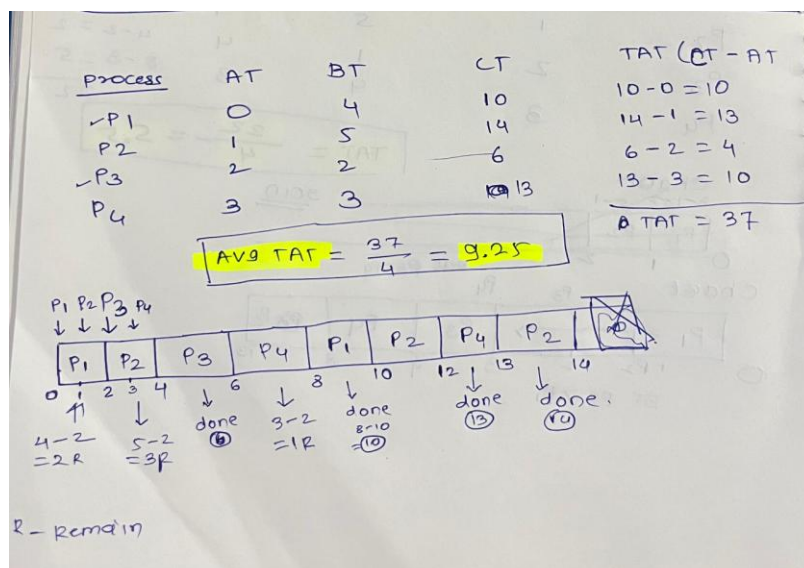 Process AT BT CT TAT (CT - AT
P1 0 4 10 10-0 = 10
P2 1 5 14 14-1 = 13
P3 2 2 6 6-2 = 4
P4 3 3 13 13-3 = 10
TAT = 37
AVg TAT = 37/4 = 9.25
P1 P2 P3 P4
P1 P2 P3 P4 P1 P2 P4 P2
0 1 2 3 4 6 8 10 12 13 14
4-2 =2R
5-2 =3R
done 6
3-2 =1R
done 8-10 =10
done 13
done. 14
R - Remain